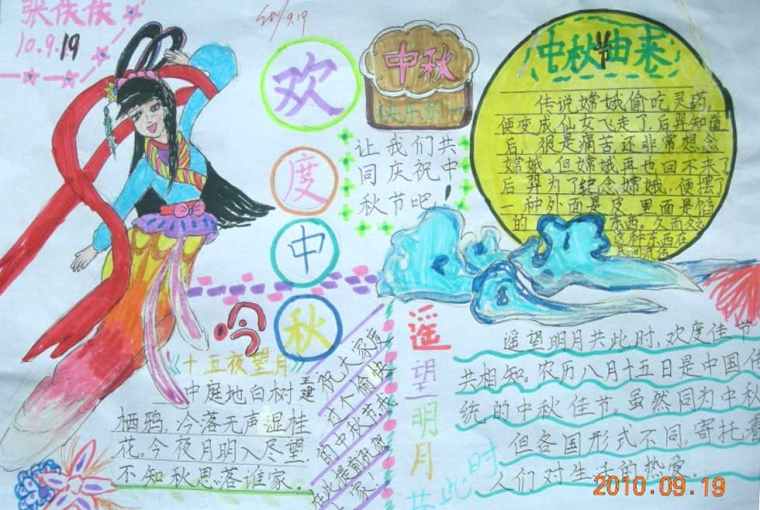 张佚佚
10.9.19
欢
度
中
秋
中秋
让我们共
同庆祝中
秋节吧！
中秋由来
传说嫦娥偷吃灵药，
便变成仙女飞走了，后羿知道
后，狠是痛苦还非常想念
嫦娥。但嫦娥再也回不来了
后羿为了纪念嫦娥，便摆了
一种外面是皮，里面是馅
的 东西，久而久
吟
《十五夜望月》
王建
中庭地白树
栖鸦，冷落无声湿桂
花。今夜月明入尽望，
不知秋思落谁家。
祝大家度
过个愉快
的中秋节,
在此提前祝贺
大家！
遥
望
明
月
共此时
遥望明月共此时，欢度佳节
共相知。农历八月十五日是中国传
统的中秋佳节。虽然同为中秋
但各国形式不同，寄托着
人们对生活的热爱。
2010.09.19